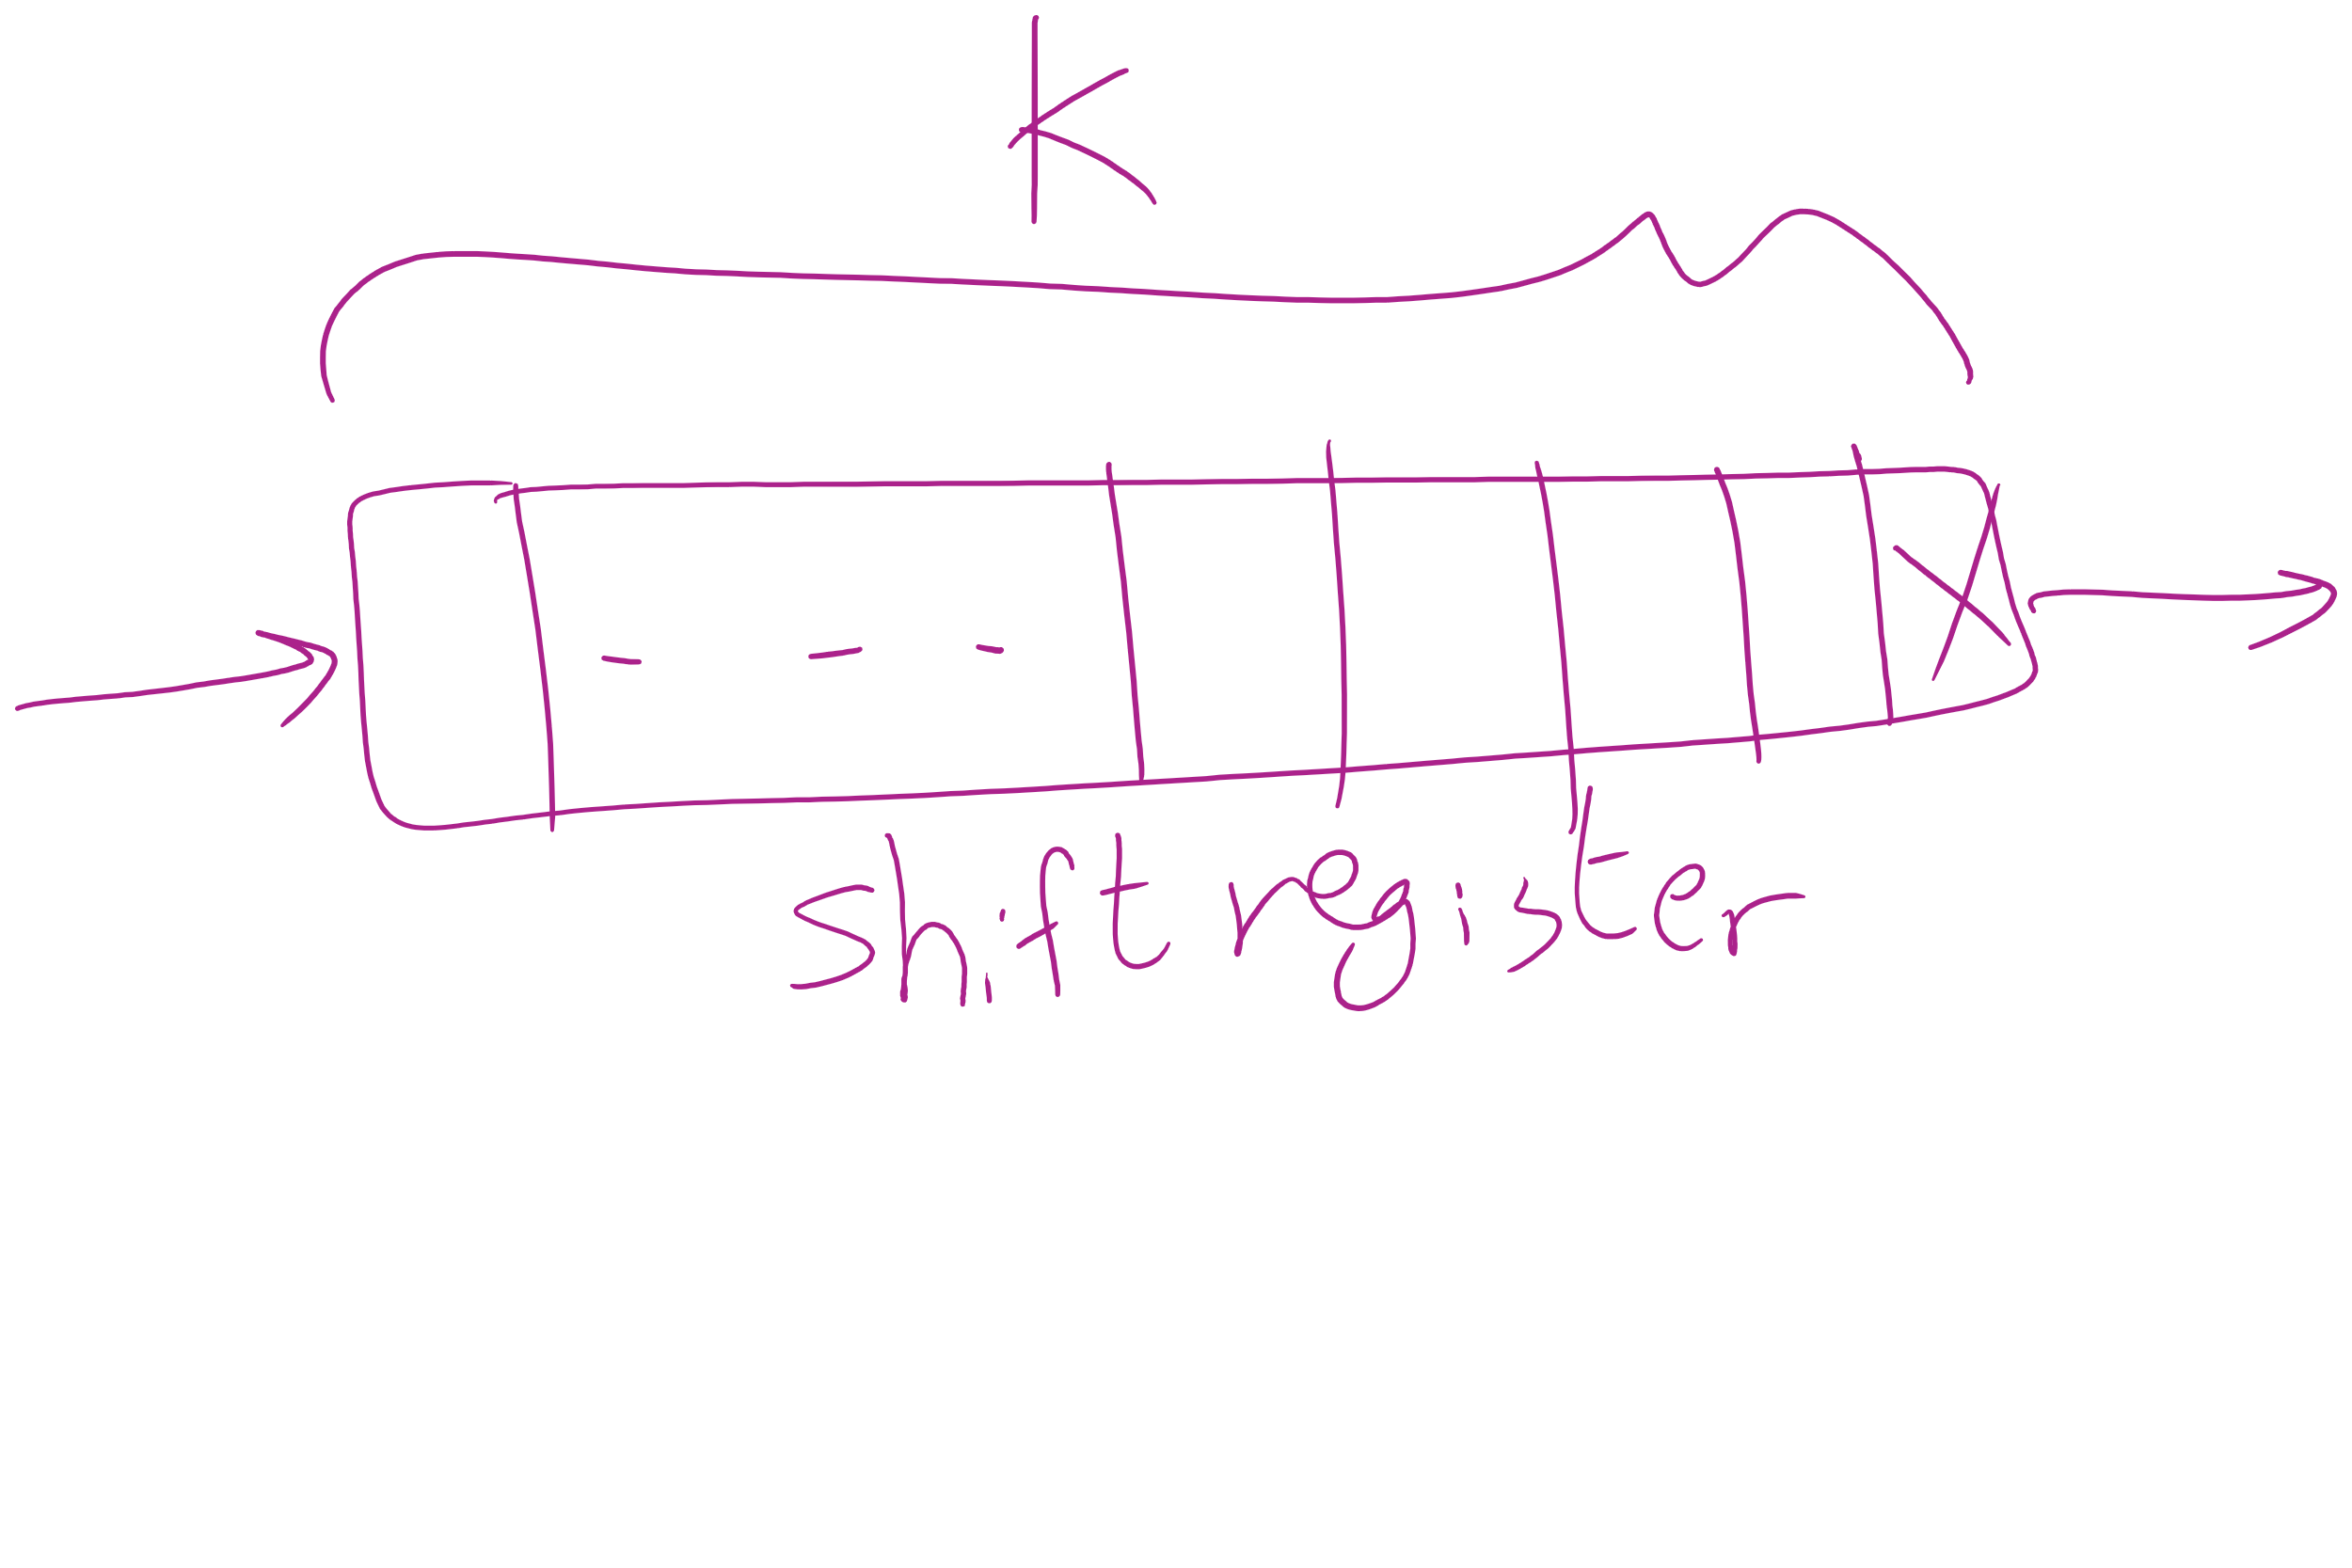 K
X
shift register